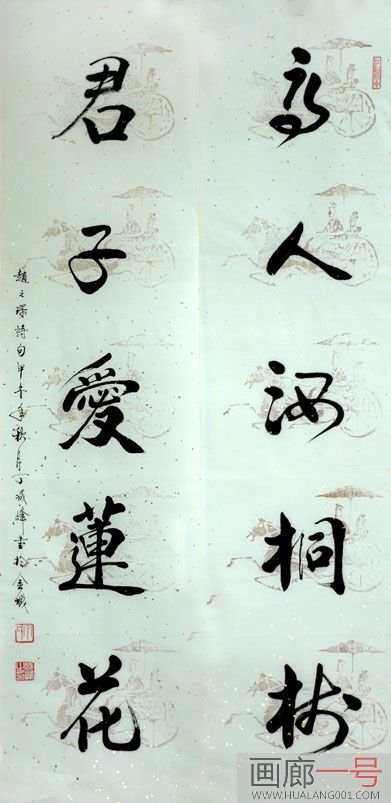 高人洗桐樹
君子愛蓮花
趙之琛詩句甲午年秋月丁書於金城
画廊一号
WWW.HUALANG001.COM